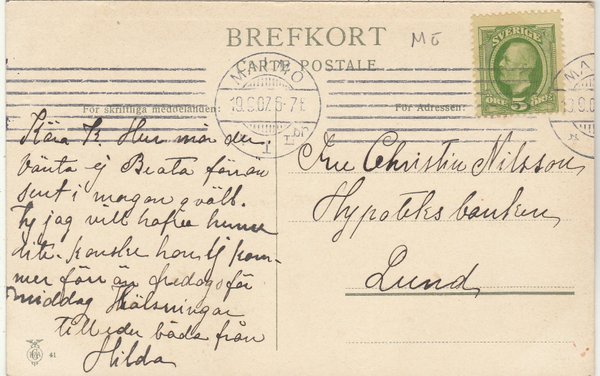 BREFKORT
CARTE POSTALE
Mö
SVERIGE
ÖRE 5 ÖRE
MALMÖ
19.6.07.6-7E
För skriftliga meddelanden:
För Adressen:
Kära K. Hur mår du
vänta ej Beata förrän
sent i morgon qväll.
Ty jag vill hafva henne
lite. kanske hon ej kom-
mer förr än fredags för
middag Hälsningar
till eder båda från
Hilda
Fru Christin Nilsson
Hypoteksbanken
Lund
41